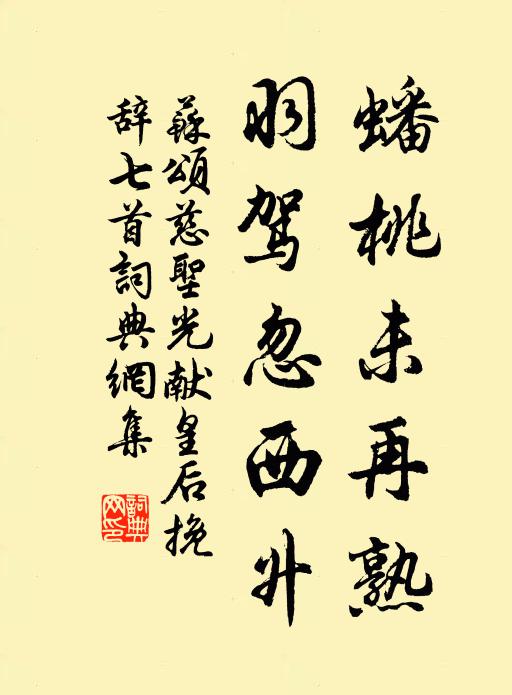 蟠桃未再熟
羽驾忽西升
蘇頌慈聖光献皇后挽
辞七首詞典網集
詞典
网印